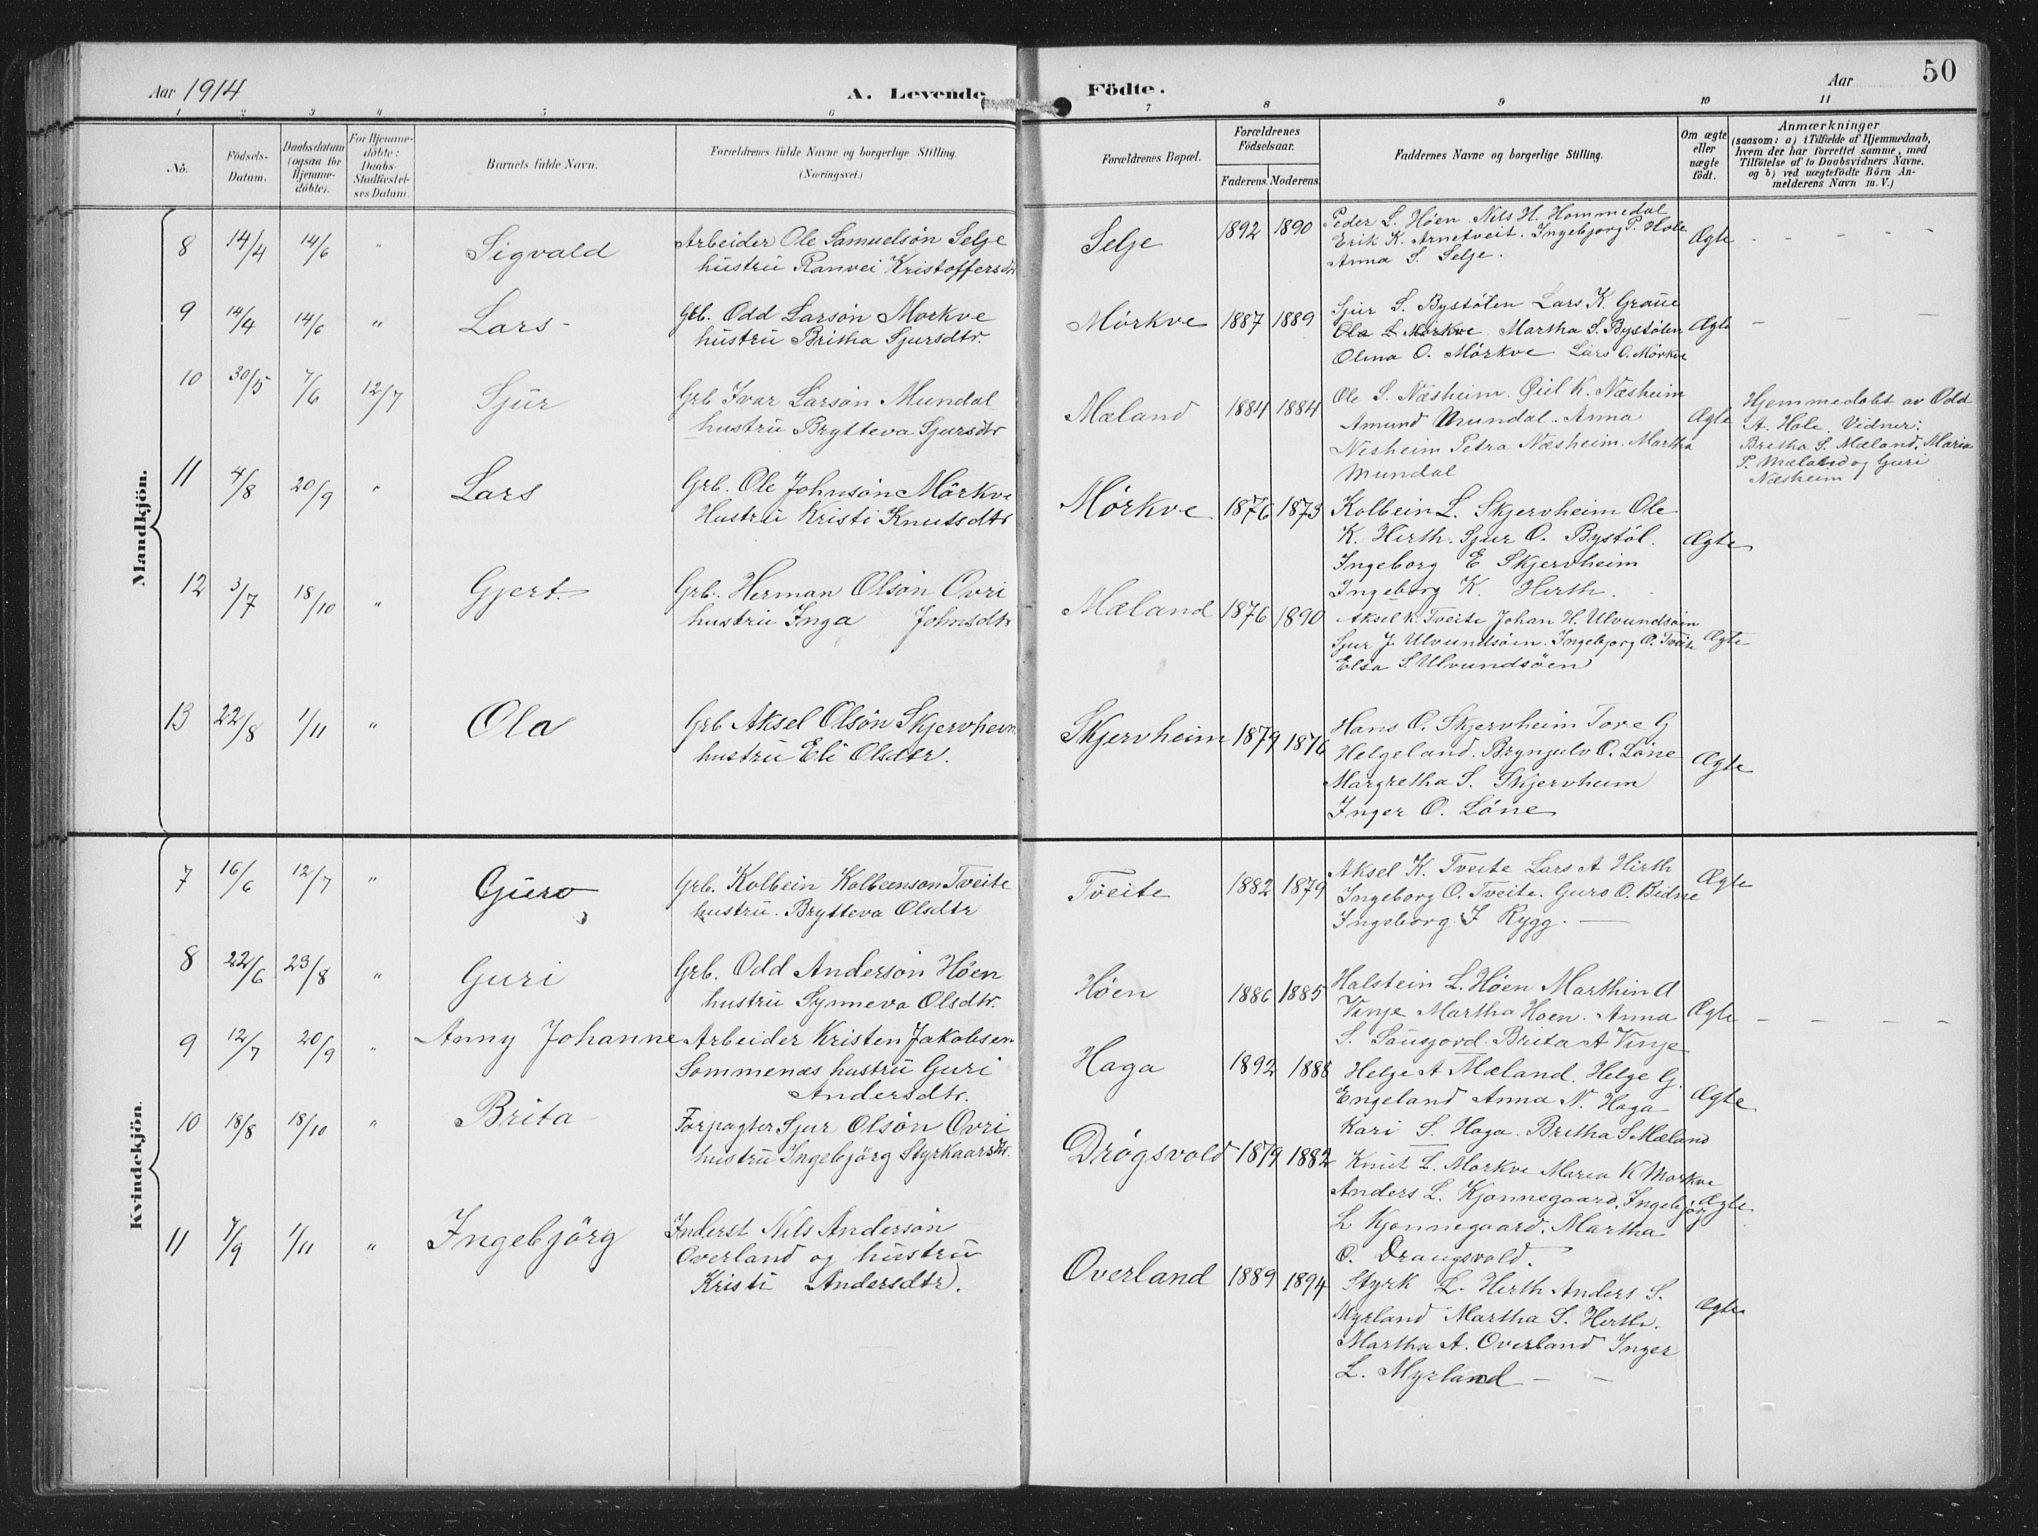 Aar 1914
A. Levende
Födte.
Aar
50
1 2 3 4 5 6 7 8 9 10 11
No.
Födsels-
Datum.
Daabsdatum
(ogsaa for
Hjemme-
döbte).
For Hjemme-
döbte:
Daabs-
Stadfæstel-
ses Datum.
Barnets fulde Navn.
Forældrenes fulde Navne og borgerlige Stilling.
(Næringsvei.)
Forældrenes Bopæl.
Forældrenes
Födselsaar.
Faderens. Moderens.
Faddernes Navne og borgerlige Stilling.
Om ægte
eller
uægte
födt.
Anmærkninger
(saasom: a) i Tilfælde af Hjemmedaab,
hvem der har forrettet samme, med
Tilföielse af to Daabsvidners Navne,
og b) ved uægtefödte Börn An-
melderens Navn m. V.)
Mandkjön.
8 14/4 14/6 " Sigvald
Arbeider Ole Samuelsön Selje
hustru Ranvei Kristoffersdtr
Selje 1892 1890
Peder L. Höen Nils H. Hommedal
Erik K. Arnetveit. Ingebjorg P. Hole
Anna S. Selje.
Ægte - - - -
9 14/4 14/6 " Lars -
Grb. Odd Larson Morkve
hustru Britha Sjursdtr.
Mörkve 1887 1889
Sjur S. Bystölen Lars K. Graue
Ola L. Mörkve Martha S. Bystölen
Olina O. Mörkve Lars O. Mörkve
Ægte - - -
10 30/5 7/6 12/7 Sjur
Grb Ivar Larson Mundal
hustru Brytteva Sjursdtr
Mæland 1884 1884
Ole S. Næsheim. Giel K. Næsheim
Amund Mundal. Anna
Nesheim Petra Næsheim. Martha
Mundal
Ægte
Hjemmedöbt av Odd
A. Hole. Vidner:
Britha S. Mæland. Maria
P. Mæland og Guri
Næsheim
11 4/8 20/9 " Lars
Grb. Ole Johnsön Mörkve
Hustru Kristi Knutsdtr
Mörkve 1876 1873
Kolbein L. Skjervheim Ole
K. Hirth. Sjur O. Bystöl.
Ingeborg E Skjervheim
Ingeborg K. Hirth.
Ægte
12 3/7 18/10 " Gjert.
Grb. Herman Olsön Ovri
hustru Inga Johnsdtr
Mæland 1876 1890
Aksel K. Tveite Johan H. Ulvundsöin
Sjur J Ulvundsöen. Ingebjorg O. Tveite
Elsa S. Ulvundsöen
Ægte
13 22/8 1/11 " Ola
Grb Aksel Olsön Skjervheim
hustru Eli Olsdtr.
Skjervheim 1879 1876
Hans O. Skjervheim Tore G
Helgeland. Brynjulv O. Löne
Margretha S. Skjervheim
Inger O. Löne
Ægte
Kvindekjön.
7 16/6 12/7 " Guro
Grb. Kolbein Kolbeinson Tveite
hustru. Brytteva Olsdtr
Tveite 1882 1879
Aksel K. Tveite Lars A Hirth
Ingeborg O. Tveite. Guro O. Bidne
Ingeborg I Rygg. -
Ægte
8 22/6 23/8 " Guri
Grb. Odd Anderson Höen
hustru Synneva Olsdtr.
Höen 1886 1885
Halstein L. Höen Marthin A
Vinje Martha Hoen. Anna
S. Sausjord. Brita A Vinje
Ægte - - - -
9 12/7 20/9 " Anny Johanne
Arbeider Kristen Jakobsen
Sommenæs hustru Guri
Andersdtr.
Haga 1892 1888
Helge A Mæland. Helge G.
Engeland Anna N. Haga
Kari S. Haga. Britha S. Mæland
Ægte
10 18/8 18/10 " Brita
Forpagter Sjur Olsön Ovri
hustru Ingebjörg Styrkaarsdtr.
Drögsvold 1879 1882
Knut L. Morkve Maria K Morkve
Anders L. Kjonnegaard. Ingebjör
L Kjonnegaard. Martha
O. Draugsvold.
Ægte
11 7/9 1/11 " Ingebjörg
Inderst Nils Anderson
Overland og hustru
Kristi Andersdtr.
Overland 1889 1894
Styrk L. Hirth Anders S.
Myrland Martha S. Hirth.
Martha A. Overland Inger
L. Myrland - -
Ægte